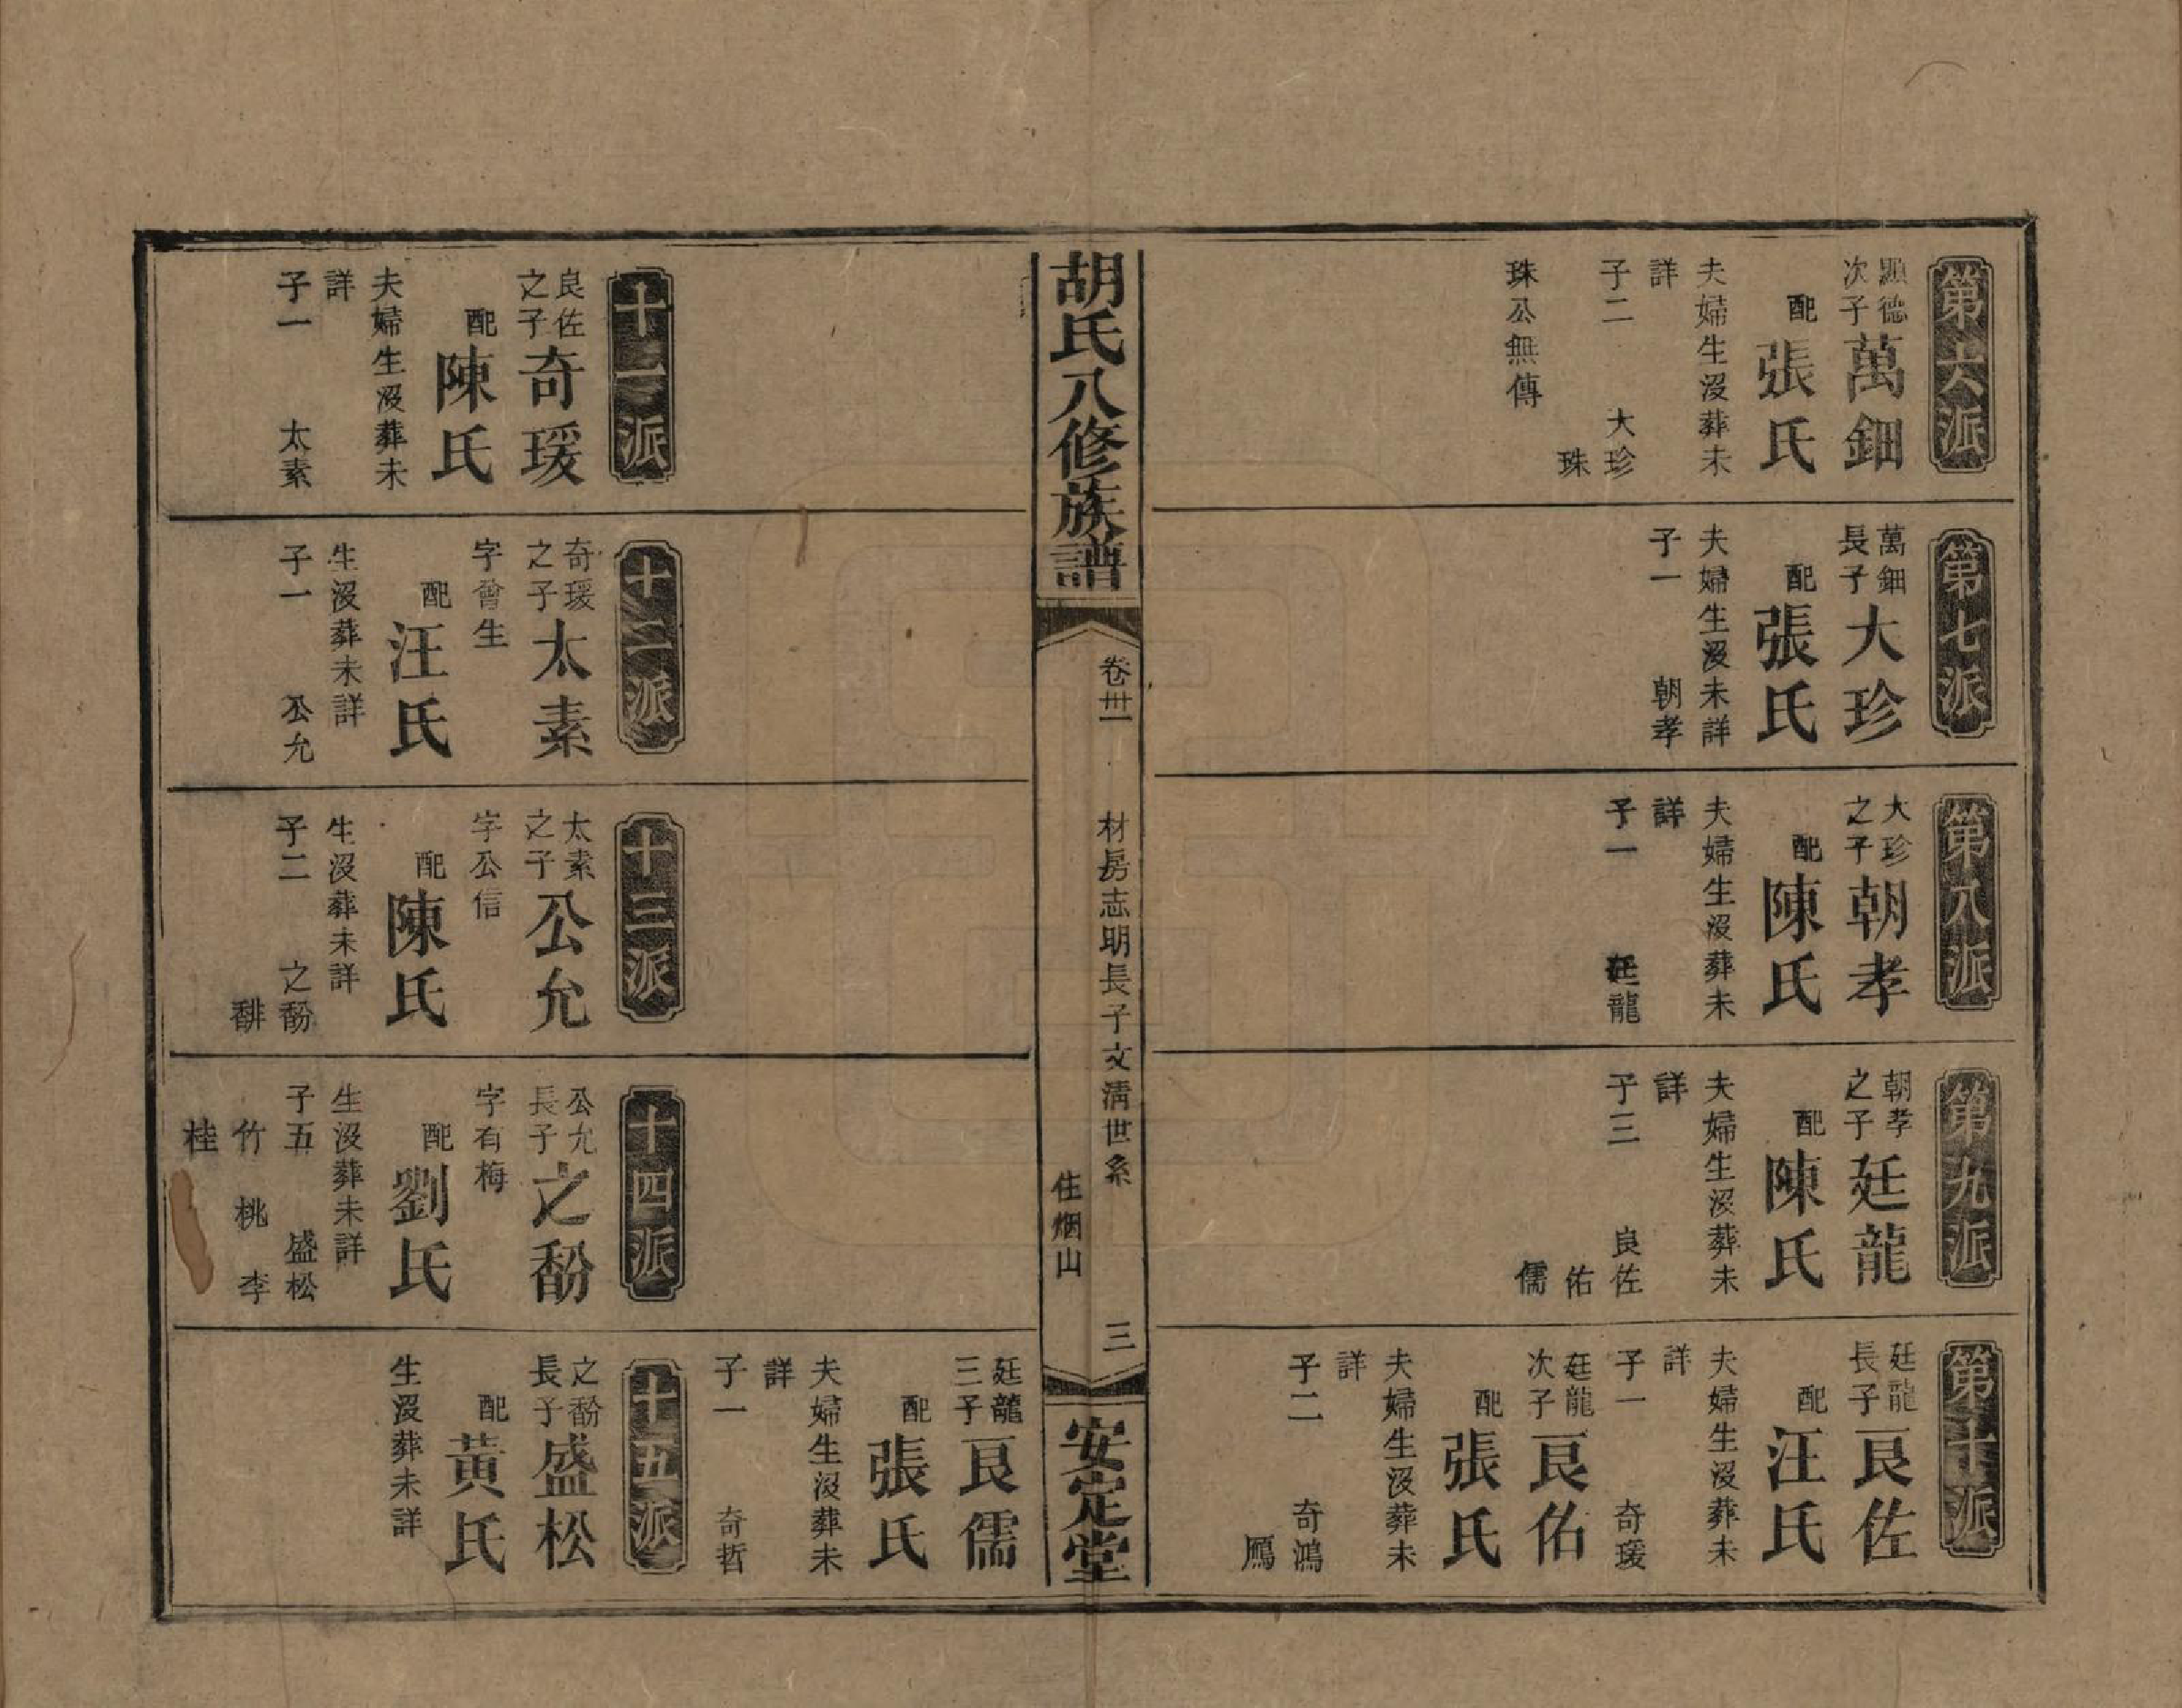 第六派
顯德
次子
萬鈿
配
張氏
夫婦生沒葬未
詳
子二　大珍
珠
珠公無傳
第七派
萬鈿
長子
大珍
配
張氏
夫婦生沒未詳
子一　朝孝
第八派
大珍
之子
朝孝
配
陳氏
夫婦生沒葬未
詳
子一　廷龍
第九派
朝孝
之子
廷龍
配
陳氏
夫婦生沒葬未
詳
子三　良佐
佑
儒
第十派
廷龍
長子
良佐
配
汪氏
夫婦生沒葬未
詳
子一　奇瑗
廷龍
次子
良佑
配
張氏
夫婦生沒葬未
詳
子二　奇鴻
鴈
胡氏八修族譜
卷卅一
材房志明長子文清世系
住烟山
三
安定堂
廷龍
三子
良儒
配
張氏
夫婦生沒葬未
詳
子一　奇哲
十一派
良佐
之子
奇瑗
配
陳氏
夫婦生沒葬未
詳
子一　太素
十二派
奇瑗
之子
太素
字曾生
配
汪氏
生沒葬未詳
子一　公允
十三派
太素
之子
公允
字公信
配
陳氏
生沒葬未詳
子二　之馚
馡
十四派
公允
長子
之馚
字有梅
配
劉氏
生沒葬未詳
子五　盛松
竹　桃　李
桂
十五派
之馚
長子
盛松
配
黃氏
生沒葬未詳